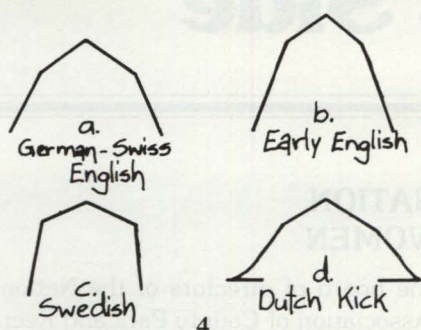 Side
a.
German-Swiss
English
b.
Early English
c.
Swedish
d.
Dutch Kick
4